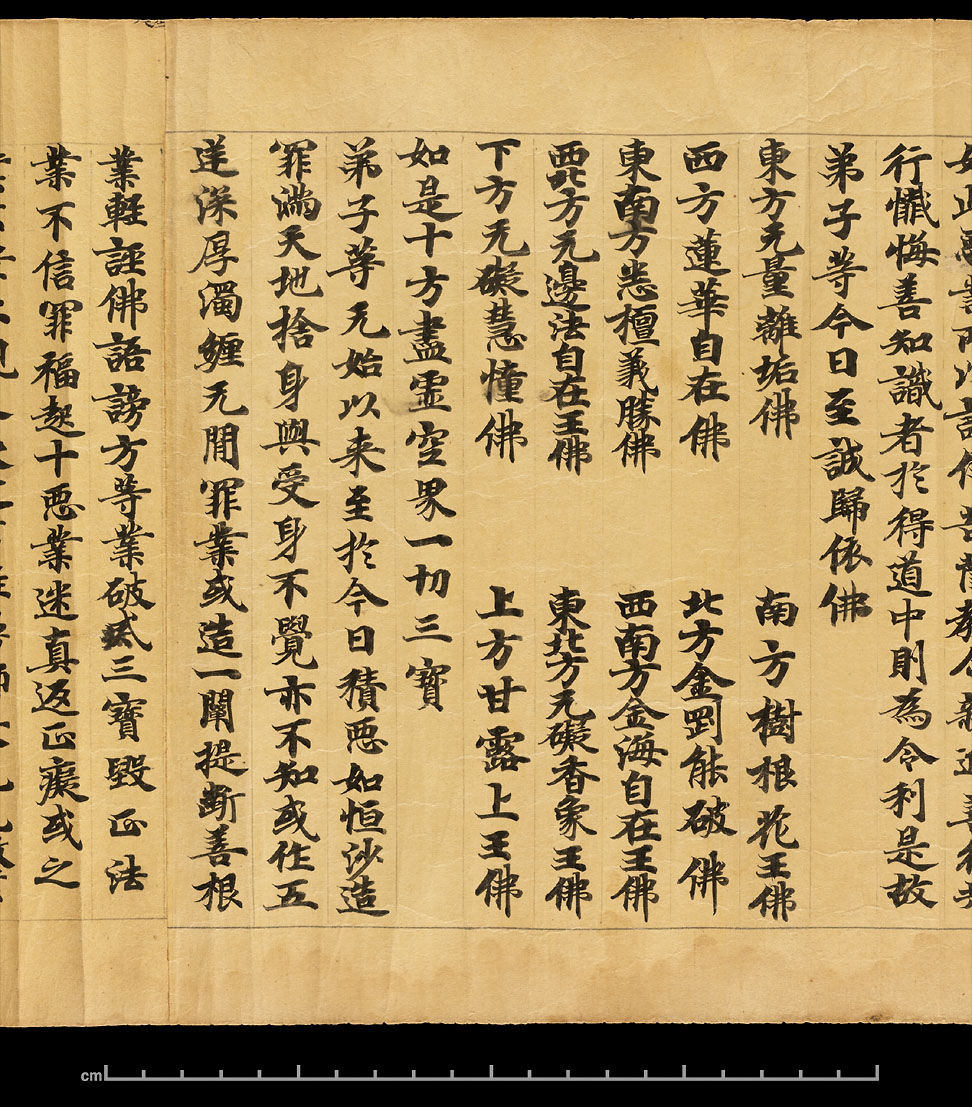 行懺悔善知識者於得道中則為令利是故
弟子等今日至誠歸依佛
東方无量離垢佛 南方樹根花王佛
西方蓮華自在佛 北方金罡能破佛
東南方悉檀義勝佛 西南方金海自在王佛
西北方无邊法自在王佛 東北方元礙香象王佛
下方无礙慧憧佛 上方甘露上王佛
如是十方盡虛空界一切三寶
弟子等元始以来至於今日積惡如恒沙造
罪滿天地捨身與受身不覺亦不知或作五
逆深厚濁纏无間罪業或造一闡提斷善根
業輕誣佛語謗方等業破滅三寶毀正法
業不信罪福起十惡業迷真返正癡或之